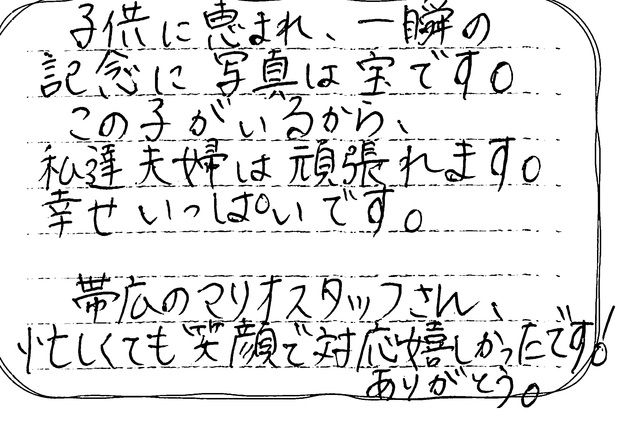 子供に恵まれ、一瞬の
記念に写真は宝です。
この子がいるから、
私達夫婦は頑張れます。
幸せいっぱいです。
帯広のマリオスタッフさん、
忙しくても笑顔で対応嬉しかったです!
ありがとう。